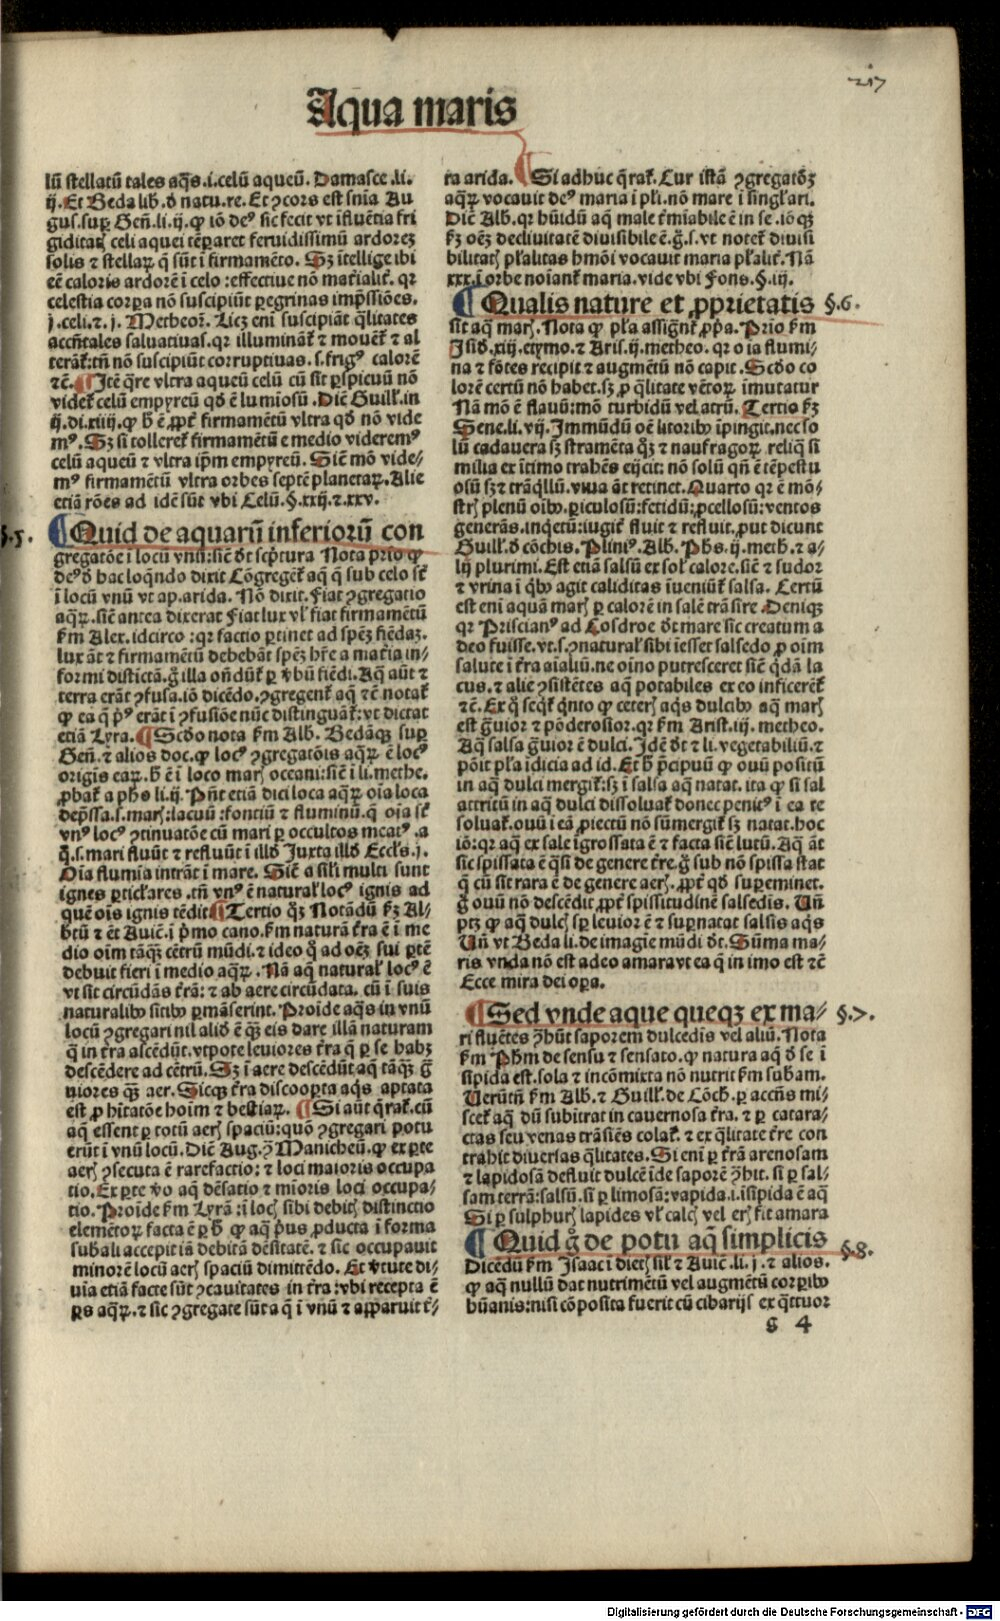 257
Aqua maris
lū stellatū tales aq̄s.i.celū aqueū. Damasce.li.
ij. Et Beda lib. d̄ natu. re. Et ꝯcors est sn̄ia Au
gus. suꝑ Gen̄. li. ij. ꝙ iō deꝰ sic fecit vt īfluētia fri
giditatꝭ celi aquei tēꝑaret feruidissimū ardorez
solis ⁊ stellaꝝ q̄ sūt ī firmamēto. Sꝫ ītellige ibi
eē caloris ardorē ī celo : effectiue nō mat̄ialit̄. qr
celestia corꝑa nō suscipiūt ꝑegrinas imp̄ssiōes.
j. celi. ⁊. j. Metheoꝝ. Licꝫ eni suscipiāt q̄litates
accn̄tales saluatiuas. qr illuminant̄ ⁊ mouent̄ ⁊ al
terant̄: tn̄ nō suscipiūt corruptiuas. s. frigꝰ calorē
⁊c̄. ¶ Itē q̄re vltra aqueū celū cū sit ꝑspicuū nō
videt̄ celū empyreū qd̄ ē lumīosū. Diē Guilł. in
ij. di. xiiij. ꝙ h̄ ē ꝓpt̄ firmamētū vltra qd̄ nō vide
mꝰ. Sꝫ si tolleret̄ firmamētū e medio videremꝰ
celū aqueū ⁊ vltra ip̄m empyreū. Siē mō vide-
mꝰ firmamētū vltra orbes septē planetaꝝ. Alie
etiā rōes ad idē sūt vbi Celū. §. xxij. ⁊. xxv.
§.5.
¶ Quid de aquarū inferiorū con
gregatōe ī locū vnū: siē dt̄ scp̄tura Nota prio ꝙ
deꝰ d̄ hac loq̄ndo dixit Cōgregent̄ aq̄ q̄ sub celo st̄
ī locū vnū vt ap. arida. Nō dixit. Fiat ꝯgregatio
aq̄ꝝ. siē antea dixerat Fiat lux vl̄ fiat firmamētū
km̄ Alex. idcirco : qr factio ꝑtinet ad spēꝫ fiēdaꝫ.
lux āt ⁊ firmamētū debebāt spēꝫ hr̄e a mat̄ia in-
formi distīctā. ḡ illa ondūt̄ ꝑ v̄bū fiēdi. Aq̄ aūt ⁊
terra erāt ꝯfusa. iō dicēdo. ꝯgregent̄ aq̄ ⁊c̄ notat̄
ꝙ ea q̄ pͥꝰ erāt ī ꝯfusiōe nūc distinguāt̄: vt dictat
etiā Lyra. ¶ Scd̄o nota km̄ Alb. Bedāqꝫ suꝑ
Gen̄. ⁊ alios doc. ꝙ locꝰ ꝯgregatōis aq̄ꝝ ē locꝰ
origīs eaꝝ. h̄ ē ī loco marꝭ occeani: siē ī li. methe.
ꝓbat̄ a phs̄ li. ij. Pn̄t etiā dici loca aq̄ꝝ oīa loca
dep̄ssa. s. marꝭ: lacuū : fontiū ⁊ fluminū. q̄ oīa st̄
vnꝰ locꝰ ꝯtinuatōe cū mari ꝑ occultos meatꝰ. a
q̄. s. mari fluūt ⁊ refluūt ī illd̄ Juxta illd̄ Eccl̄s. j.
Oīa flumīa intrāt ī mare. Siē a sil̄i multi sunt
ignes ꝑticl̄ares. tn̄ vnꝰ ē natural̄ locꝰ ignis ad
quē oīs ignis tēdit ¶ Tertio q̄ꝫ Notādū kꝫ Al-
btū ⁊ ēt Auiē. ī pͥmo cano. km̄ naturā t̄ra ē ī me
dio oīm tāqꝫ cētrū mūdi. ⁊ ideo q̄ ad oēꝫ sui ꝑtē
debuit fieri ī medio aq̄ꝝ. Nā aq̄ natural̄ locꝰ ē
vt sit circūdās t̄rā: ⁊ ab aere circūdata. cū ī suis
naturalibꝰ sitibꝰ ꝑmāserint. Proīde aq̄s in vnū
locū ꝯgregari nil alid̄ ē q̄ꝫ eis dare illā naturam
q̄ in t̄ra ascēdūt. vtpote leuiores t̄ra q̄ ꝑ se habꝫ
descēdere ad cētrū. Sꝫ ī aere descēdūt aq̄ tāq̄ꝫ g̈
uiores q̄ꝫ aer. Sicqꝫ t̄ra discooꝑta aq̄s aptata
est ꝓ hītatōe hoīm ⁊ bestiaꝝ. ¶ Si aūt q̄rat̄. cū
aq̄ essent ꝑ totū aerꝭ spaciū: quō ꝯgregari potu
erūt ī vnū locū. Diē Aug. ꝯ̄ Manicheū. ꝙ ex ꝑte
aerꝭ ꝯsecuta ē rarefactio: ⁊ loci maioris occupa
tio. Ex ꝑte v̄o aq̄ dēsatio ⁊ mīoris loci occupa-
tio. Proīde km̄ Lyrā : ī locꝭ sibi debitꝭ distinctio
elemētoꝝ facta ē ꝑ h̄ ꝙ aq̄ pͥus ꝓducta ī forma
subāli accepit īā debitā dēsitatē. ⁊ sic occupauit
minorē locū aerꝭ spaciū dimittēdo. Et v̄tute di-
uīa etiā facte sūt ꝯcauitates in t̄ra : vbi recepta ē
ꝑs aq̄ꝝ. ⁊ sic ꝯgregate sūt aq̄ ī vnū ⁊ apꝑaruit t̄-
ra arida. ¶ Si adhuc q̄rat̄. Cur istā ꝯgregatōꝫ
aq̄ꝝ vocauit deꝰ maria ī pl̄i. nō mare ī singl̄ari.
Diē Alb. qr hūidū aq̄ male t̄mīabile ē in se. iō qꝫ
kꝫ oēꝫ decliuitatē diuisibile ē. g̊. s. vt notet̄ diuisi
bilitatꝭ pl̄alitas hmōi vocauit maria pl̄alit̄. Nā
xxx. ī orbe noīant̄ maria. vide vbi Fons. §. iij.
¶ Qualis nature et ꝓprietatis §.6.
sit aq̄ marꝭ. Nota ꝙ pl̄a assign̄t̄ ꝓp̄a. Prīo km̄
Isid̄. xiij. etymo. ⁊ Aris. ij. metheo. qr oīa flumi-
na ⁊ fōtes recipit ⁊ augmētū nō capit. Scd̄o co
lorē certū nō habet. sꝫ ꝓ q̄litate vētoꝝ īmutatur
Nā mō ē flauū: mō turbidū vel atrū. Tertio kꝫ
Sene. li. vij. Immūdū oē litoribꝰ īpingit. nec so
lū cadauera sꝫ stramēta q̄ꝫ ⁊ naufragoꝝ reliq̄ si
milia ex ītimo trahēs eijcit: nō solū qn̄ ē tēpestu
osū sꝫ ⁊ trāq̄llū. viua āt retinet. Quarto qr ē mō-
strꝭ plenū oībꝰ. ꝑiculosū: fetidū: ꝓcellosū: ventos
generās. inq̄etū: iugit̄ fluit ⁊ refluit. ꝓut dicunt
Guilł. d̄ cōchis. Pliniꝰ. Alb. Phs̄. ij. meth. ⁊ a-
lij plurimi. Est etiā salsū ex sol̄ calore. siē ⁊ sudor
⁊ vrina ī qͥbꝰ agit caliditas īueniūt̄ salsa. Certū
est eni aquā marꝭ ꝑ calorē in salē trāsire. Deniqꝫ
qr Priscianꝰ ad Cosdroe dt̄ mare sic creatum a
deo fuisse. vt. s. ꝯnatural̄ sibi īesset salsedo ꝓ oīm
salute ī t̄ra aīaliū. ne oīno putresceret siē q̄dā la
cus. ⁊ alie ꝯsistētes aq̄ potabiles ex eo inficerēt̄
⁊c̄. Ex q̊ seqͥt̄ qͥnto ꝙ ceterꝭ aq̄s dulcibꝰ aq̄ marꝭ
est g̈uior ⁊ pōderosior. qr km̄ Arist. iij. metheo.
Aq̄ salsa g̈uior ē dulci. Idē dt̄ ⁊ li. vegetabiliū. ⁊
pōit pl̄a īdicia ad id. Et h̄ p̄cipuū ꝙ ouū positū
in aq̄ dulci mergit̄: sꝫ ī salsa aq̄ natat. ita ꝙ si sal
attritū in aq̄ dulci dissoluat̄ donec penitꝰ ī ea re
soluat̄. ouū ī eā ꝓiectū nō sūmergit̄ sꝫ natat. hoc
iō: qr aq̄ ex sale īgrossata ē ⁊ facta siē lutū. Aq̄ āt
sic spissata ē q̄si de genere t̄re. g̊ sub nō spissa stat
q̄ cū sit rara ē de genere aerꝭ. ꝓpt̄ qd̄ suꝑeminet.
g̊ ouū nō descēdit ꝓpt̄ spissitudinē salsedis. Un̄
ptꝫ ꝙ aq̄ dulcꝭ sp̄ leuior ē ⁊ suꝑnatat salsis aq̄s
Un̄ vt Beda li. de imagīe mūdi dt̄. Sūma ma-
ris vnda nō est adeo amara vt ea q̄ in imo est ⁊c̄
Ecce mira dei oꝑa.
¶ Sed vnde aque queqꝫ ex ma- §.7.
ri fluētes ꝯhūt saporem dulcedīs vel aliū. Nota
km̄ Phm̄ de sensu ⁊ sensato. ꝙ natura aq̄ d̄ se ī
sipida est. sola ⁊ incōmixta nō nutrit km̄ subam.
Uerūtn̄ km̄ Alb. ⁊ Guilł. de Cōch. ꝑ accn̄s mi-
scet̄ aq̄ dū subītrat in cauernosa t̄ra. ⁊ ꝑ catara-
ctas seu venas trāsiēs colat̄. ⁊ ex q̄litate t̄re con
trahit diuersas q̄litates. Si eni ꝑ t̄rā arenosam
⁊ lapidosā defluit dulcē īde saporē ꝯ̄hit. si ꝑ sal-
sam terrā: salsū. si ꝑ limosā: vapida. i. īsipida ē aq̄
Si ꝑ sulphurꝭ lapides vl̄ calcꝭ vel erꝭ fit amara
¶ Quid g̊ de potu aq̄ simplicis §.8.
Dicēdū km̄ Isaac ī dietꝭ sil̄ ⁊ Auiē. li. j. ⁊ alios.
ꝙ aq̄ nullū dat nutrimētū vel augmētū corꝑibꝰ
hūanis: nisi cōposita fuerit cū cibarijs ex q̄ttuor
g 4
Digitalisierung gefördert durch die Deutsche Forschungsgemeinschaft - DFG